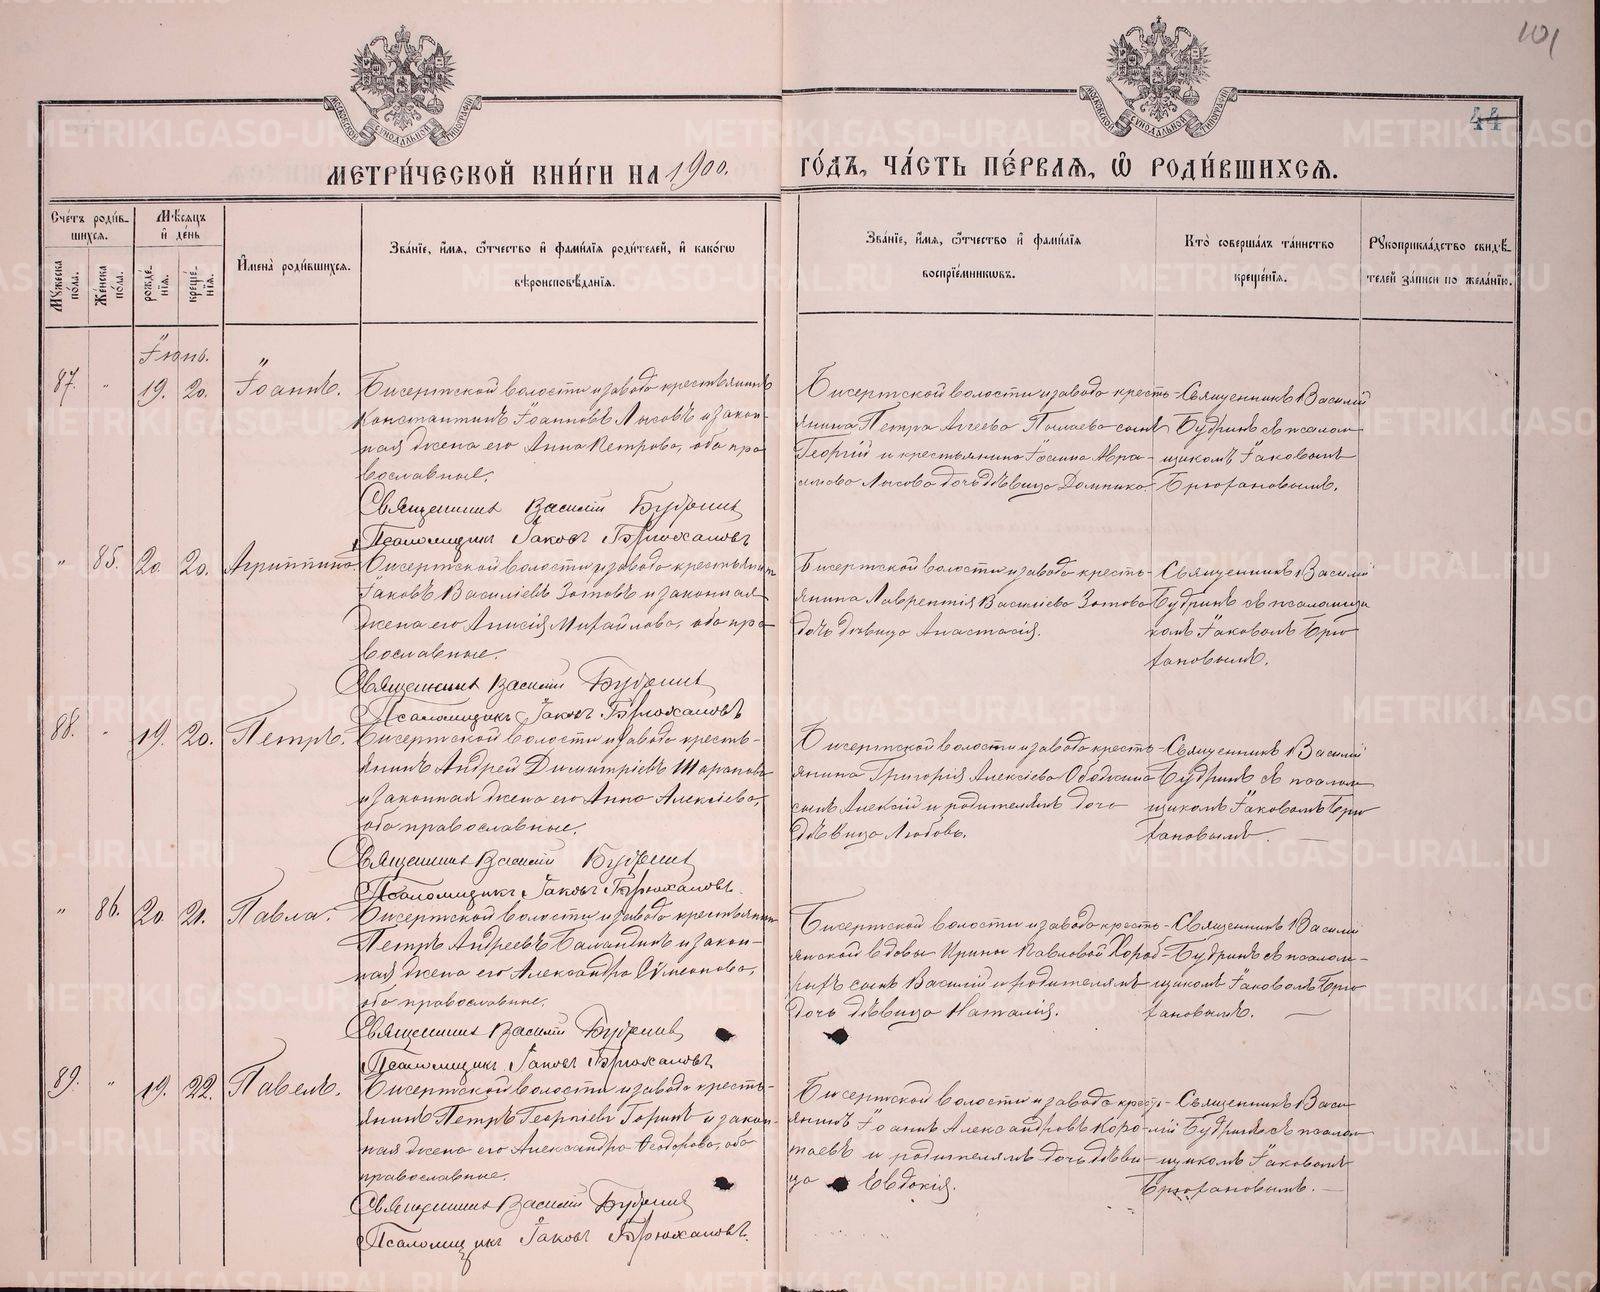 101
44
МЕТРИ́ЧЕСКОЙ КНИ́ГИ НА 1900. ГО́ДЪ, ЧА́СТЬ ПЕ́РВАЯ, Ѡ РОДИ́ВШИХСЯ.
Сче́тъ роди́вшихся.
Мꙋ́жеска по́ла.
Же́нска по́ла.
Мѣ́сяцъ и де́нь
рожде́нїя.
креще́нїя.
И҆мена̀ роди́вшихся.
Зва́нїе, и҆́мя, ѻ҆́тчество и҆ фами́лїя роди́телей, и҆ како́гѡ
вѣроисповѣ́данїя.
Зва́нїе, и҆́мя, ѻ҆́тчество и҆ фами́лїя
воспрїе́мникѡвъ.
Кто̀ соверша́лъ та́инство
креще́нїя.
Рꙋкоприкла́дство свидѣ́телей за́писи по жела́нїю.
Іюнь.
87. " 19. 20. Іоаннъ.
Бисертской волости и завода крестьянинъ
Константинъ Іоанновъ Лысовъ и закон-
ная жена его Анна Петрова, оба пра
вославные.
Священникъ Василій Будринъ
Псаломщикъ Іаковъ Брюхановъ
Бисертской волости и завода кресть-
янина Петра Агеева сынъ
Георгій и крестьянина Іоанна Авра-
амова Лысова дочь дѣвица Домника.
Священникъ Василій
Будринъ съ псалом
щикомъ Іаковомъ
Брюхановымъ.
" 85. 20. 20. Агриппина
Бисертской волости и завода крестьянинъ
Іаковъ Василіевъ Зотовъ и законная
жена его Анисія Михайлова, оба пра
вославные.
Священникъ Василій Будринъ
Псаломщикъ Іаковъ Брюхановъ
Бисертской волости и завода кресть-
янина Лаврентія Василіева Зотова
дочь дѣвица Анастасія.
Священникъ Василій
Будринъ съ псаломщи
комъ Іаковомъ Брю
хановымъ.
88. " 19. 20. Петръ.
Бисертской волости и завода кресть-
янинъ Андрей Димитріевъ Шараповъ
и законная жена его Анна Алексіева,
оба православные.
Священникъ Василій Будринъ
Псаломщикъ Іаковъ Брюхановъ.
Бисертской волости и завода кресть-
янина Григорія Алексіева
сынъ Алексій и родителямъ дочь
дѣвица Любовь.
Священникъ Василій
Будринъ съ псалом
щикомъ Іаковомъ Брю
хановымъ
" 86. 20. 21. Павла.
Бисертской волости и завода крестьянинъ
Петръ Андреевъ Баландинъ и закон-
ная жена его Александра Сѵмеонова,
оба православные.
Священникъ Василій Будринъ
Псаломщикъ Іаковъ Брюхановъ
Бисертской волости и завода кресть-
янской вдовы Ирины Павловой Хороб-
рыхъ сынъ Василій и родителямъ
дочь дѣвица Наталія.
Священникъ Василій
Будринъ съ псалом-
щикомъ Іаковомъ Брю
хановымъ.
89. " 19. 22. Павелъ.
Бисертской волости и завода кресть-
янинъ Петръ Георгіевъ Горинъ и закон-
ная жена его Александра Ѳеодорова, оба
православные.
Священникъ Василій Будринъ
Псаломщикъ Іаковъ Брюхановъ.
Бисертской волости и завода кресть-
янинъ Іоаннъ Александровъ Коро-
таевъ и родителямъ дочь дѣви-
ца Евдокія.
Священникъ Васи
лій Будринъ съ псалом
щикомъ Іаковомъ
Брюхановымъ.
METRIKI.GASO-URAL.RU